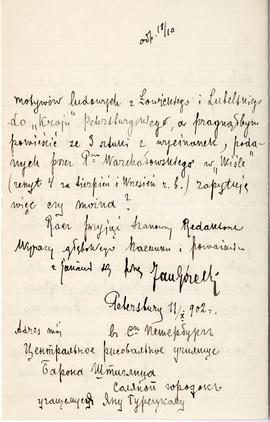 odp. 18/10
motywów ludowych z Łowickiego i Lubelskiego
do "Kraju" Petersburskiego, a pragnąłbym
powieścić ze 3 sztuki z wycinanek, poda-
nych przez Pna Warchałowskiego w "Wiśle"
(zeszyt 4 za sierpień i Wrzesień r. b.) zapytuję
więc czy można?
Racz przyjąć szanowny Redaktorze
Wyrazy głębokiego szacunku i poważania
z jakiem
Jan Górecki
Petersburg 11/X 902 r.
Adres mój
въ С. Петербургъ
Центральное училище
Барона Штиглица
Соляной городокъ
учащемуся Яну Гурецкому